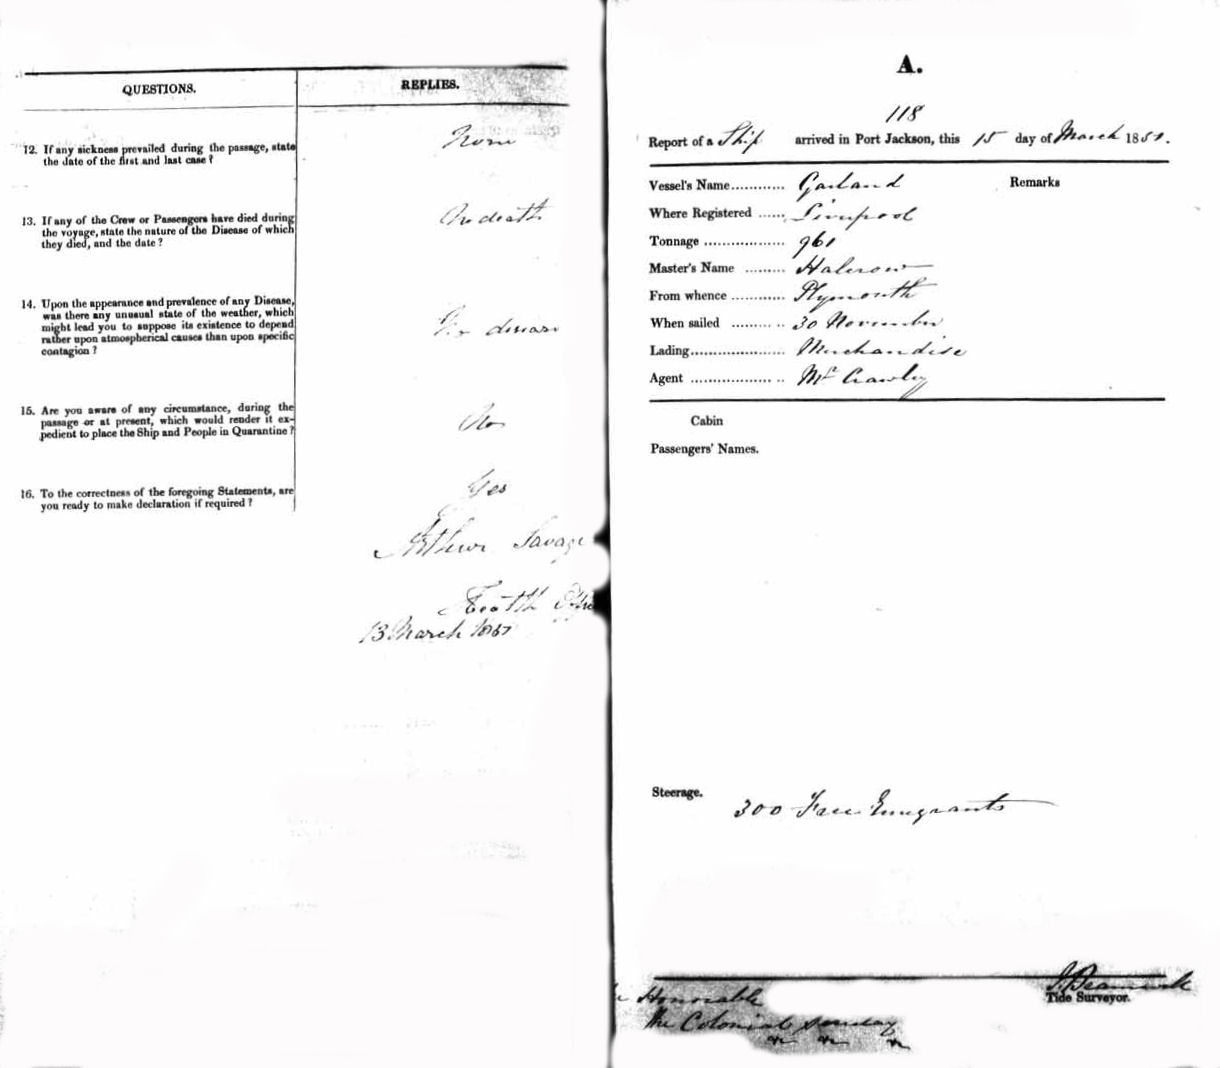 QUESTIONS.
REPLIES.
12. If any sickness prevailed during the passage, state
the date of the first and last case?
None
13. If any of the Crew or Passengers have died during
the voyage, state the nature of the Disease of which
they died, and the date?
No death
14. Upon the appearance and prevalence of any Disease,
was there any unusual state of the weather, which
might lead you to suppose its existence to depend
rather upon atmospherical causes than upon specific
contagion?
No disease
15. Are you aware of any circumstance, during the
passage or at present, which would render it ex-
pedient to place the Ship and People in Quarantine?
No
16. To the correctness of the foregoing Statements, are
you ready to make declaration if required?
Yes
Arthur Savage
Health
13 March
A.
118
Report of a Ship arrived in Port Jackson, this 15 day of March 1851.
Vessel's Name............ Garland
Remarks
Where Registered ...... Liverpool
Tonnage .................. 961
Master's Name ......... Halcrow
From whence ............ Plymouth
When sailed ............ 30 November
Lading..................... Merchandise
Agent ..................... Mr Crawley
Cabin
Passengers' Names.
Steerage.
300 Free Emigrants
Tide Surveyor.
Honorable
The Colonial